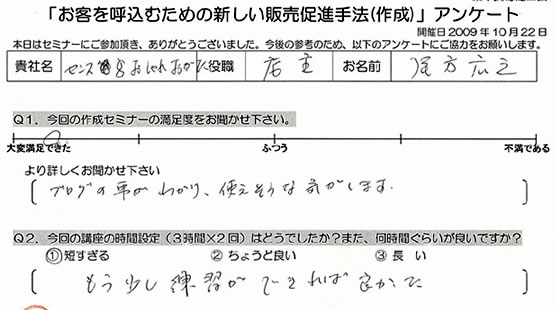 「お客を呼込むための新しい販売促進手法(作成)」アンケート
開催日2009年10月22日
本日はセミナーにご参加頂き、ありがとうございました。今後の参考のため、以下のアンケートにご協力をお願いします。
貴社名 センス おしゃれおがた 役職 店主 お名前 尾方広之
Q1．今回の作成セミナーの満足度をお聞かせ下さい。
大変満足できた ふつう 不満である
より詳しくお聞かせ下さい
ブログの事がわかり、使えそうな気がします.
Q2．今回の講座の時間設定（3時間×2回）はどうでしたか？また、何時間ぐらいが良いですか？
①短すぎる ②ちょうど良い ③長い
もう少し練習ができれば良かった